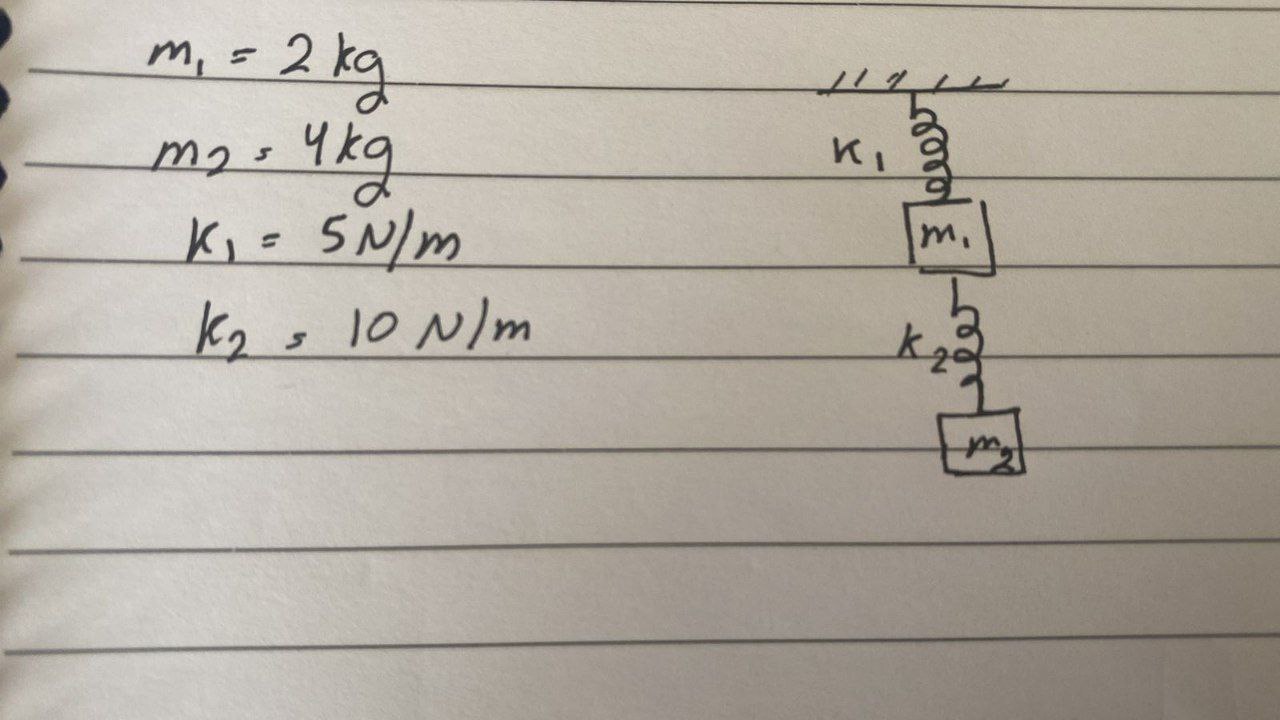 m₁ = 2 kg
m₂ = 4 kg
K₁ = 5 N/m
K₂ = 10 N/m
K₁
m₁
K₂
m₂